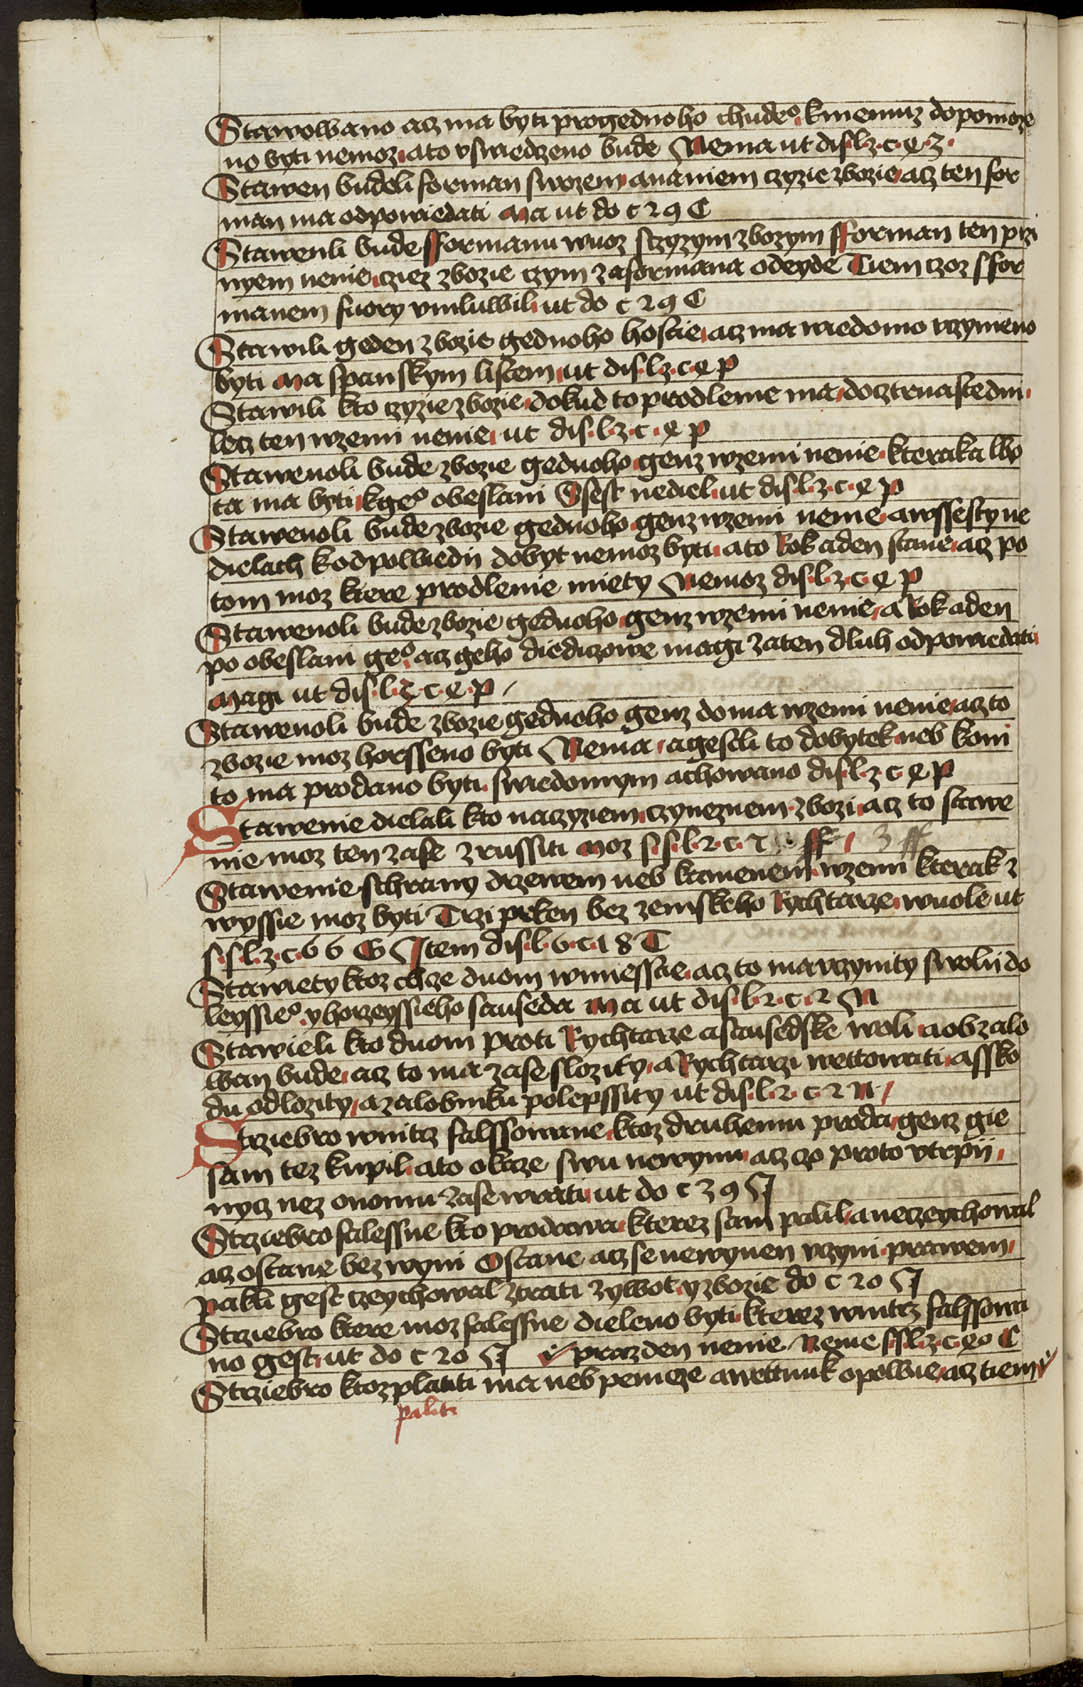 Stawowano acz ma byti progednoho chudeº kniemuz dopomoze
no byti nemoz ato vswiedczeno bude Nema ut dis·l·z·c·q·3·
Stawen budeli forman swozem anamem czyzie zbozie acz ten for
man ma odpowiedati Ma ut do c 29 C
Stawenli bude fformanu wuoz sczyzym zbozym fforman ten przi
nyem nenie cziez zbozie czym zaformana odeyde Tiem czoz sfor
manem fuory vmluwil ut do c 29 C
Stawili geden zbozie gednoho hoscie acz ma wiedomo vczyneno
byti Ma spanskym liscem ut dis·l·z·c·q p
Stawili kto czyzie zbozie dokud to prodlenie ma docztrnastedni
lecz ten wzemi nenie ut dis·l·z·c·q p
Stawenoli bude zbozie gednoho genz wzemi nenie kteraka lho
ta ma byti kgeº obeslani Ssest nediel ut dis·l·z·c·q p
Stawenoli bude zbozie gednoho genz wzemi nenie awssesty ne
dielach kodpowiedii dobyt nemoz byti ato Rok aden stane acz po
tom moz ktere prodlenie miety Nemoz dis·l·z·c·q p
Stawenoli bude zbozie gednoho genz wzemi nenie a Rok aden
po obeslani geº acz geho diediczowe magi zaten dluh odpowiedati
Magi ut dis·l·z·c·q·p
Stawenoli bude zbozie gednoho genz doma wzemi nenie acz to
zbozie moz horsseno byti Nema agestli to dobytek neb koni
to ma prodano byti swiedomym achowano dis·l·z c q p
Stawenie dielali kto naczyziem czyneznem zbozi acz to stawe
nie moz ten zase zrussiti Moz s·s·l·2·c·7 · ff 3 ff
Stawenie schrany drzewem neb kamenem wzemi kterak z
wyssie moz byti Trzi prken bez zemskeho Rychtarze wuole ut
s·s·l·z·c·6 6 G Item dis·l·6·c·18 C
Stawiety ktoz chze duom wmiessie acz to mavczynity swolii do
leyssieº y horzeyssieho sauseda Ma ut dis·l·2·c·2 N
Stawieli kto duom proti Rychtarze asausedske woli aobzalo
wan bude acz to ma zase slozity a Rychtarzi wettowati assko
du odlozity azalobniku polepssity ut dis·l·2·c·2 N
Strziebro wnitrz falssowane ktoz druhemu proda genz gie
sam tez kupil ato okaze swu newynu acz czo proto vtrpii
nycz nez onomu zase wrati ut do c 39 I
Strziebro falessne kto prodawa kterez sam palil aneczeychowal
acz ostane bez wyni Ostane acz se newynen vczyni prawem
pakli gest czeychowal ztrati zywot y zbozie do c 20 I
Strziebro ktere moz falessne dieleno byti kterez wnitrz falssowa
no gest ut do c 20 I prazden nenie Nenie ssl·z·c·qo C
Strziebro ktoz platiti ma neb penieze awettunk opowie acz tiem
paliti